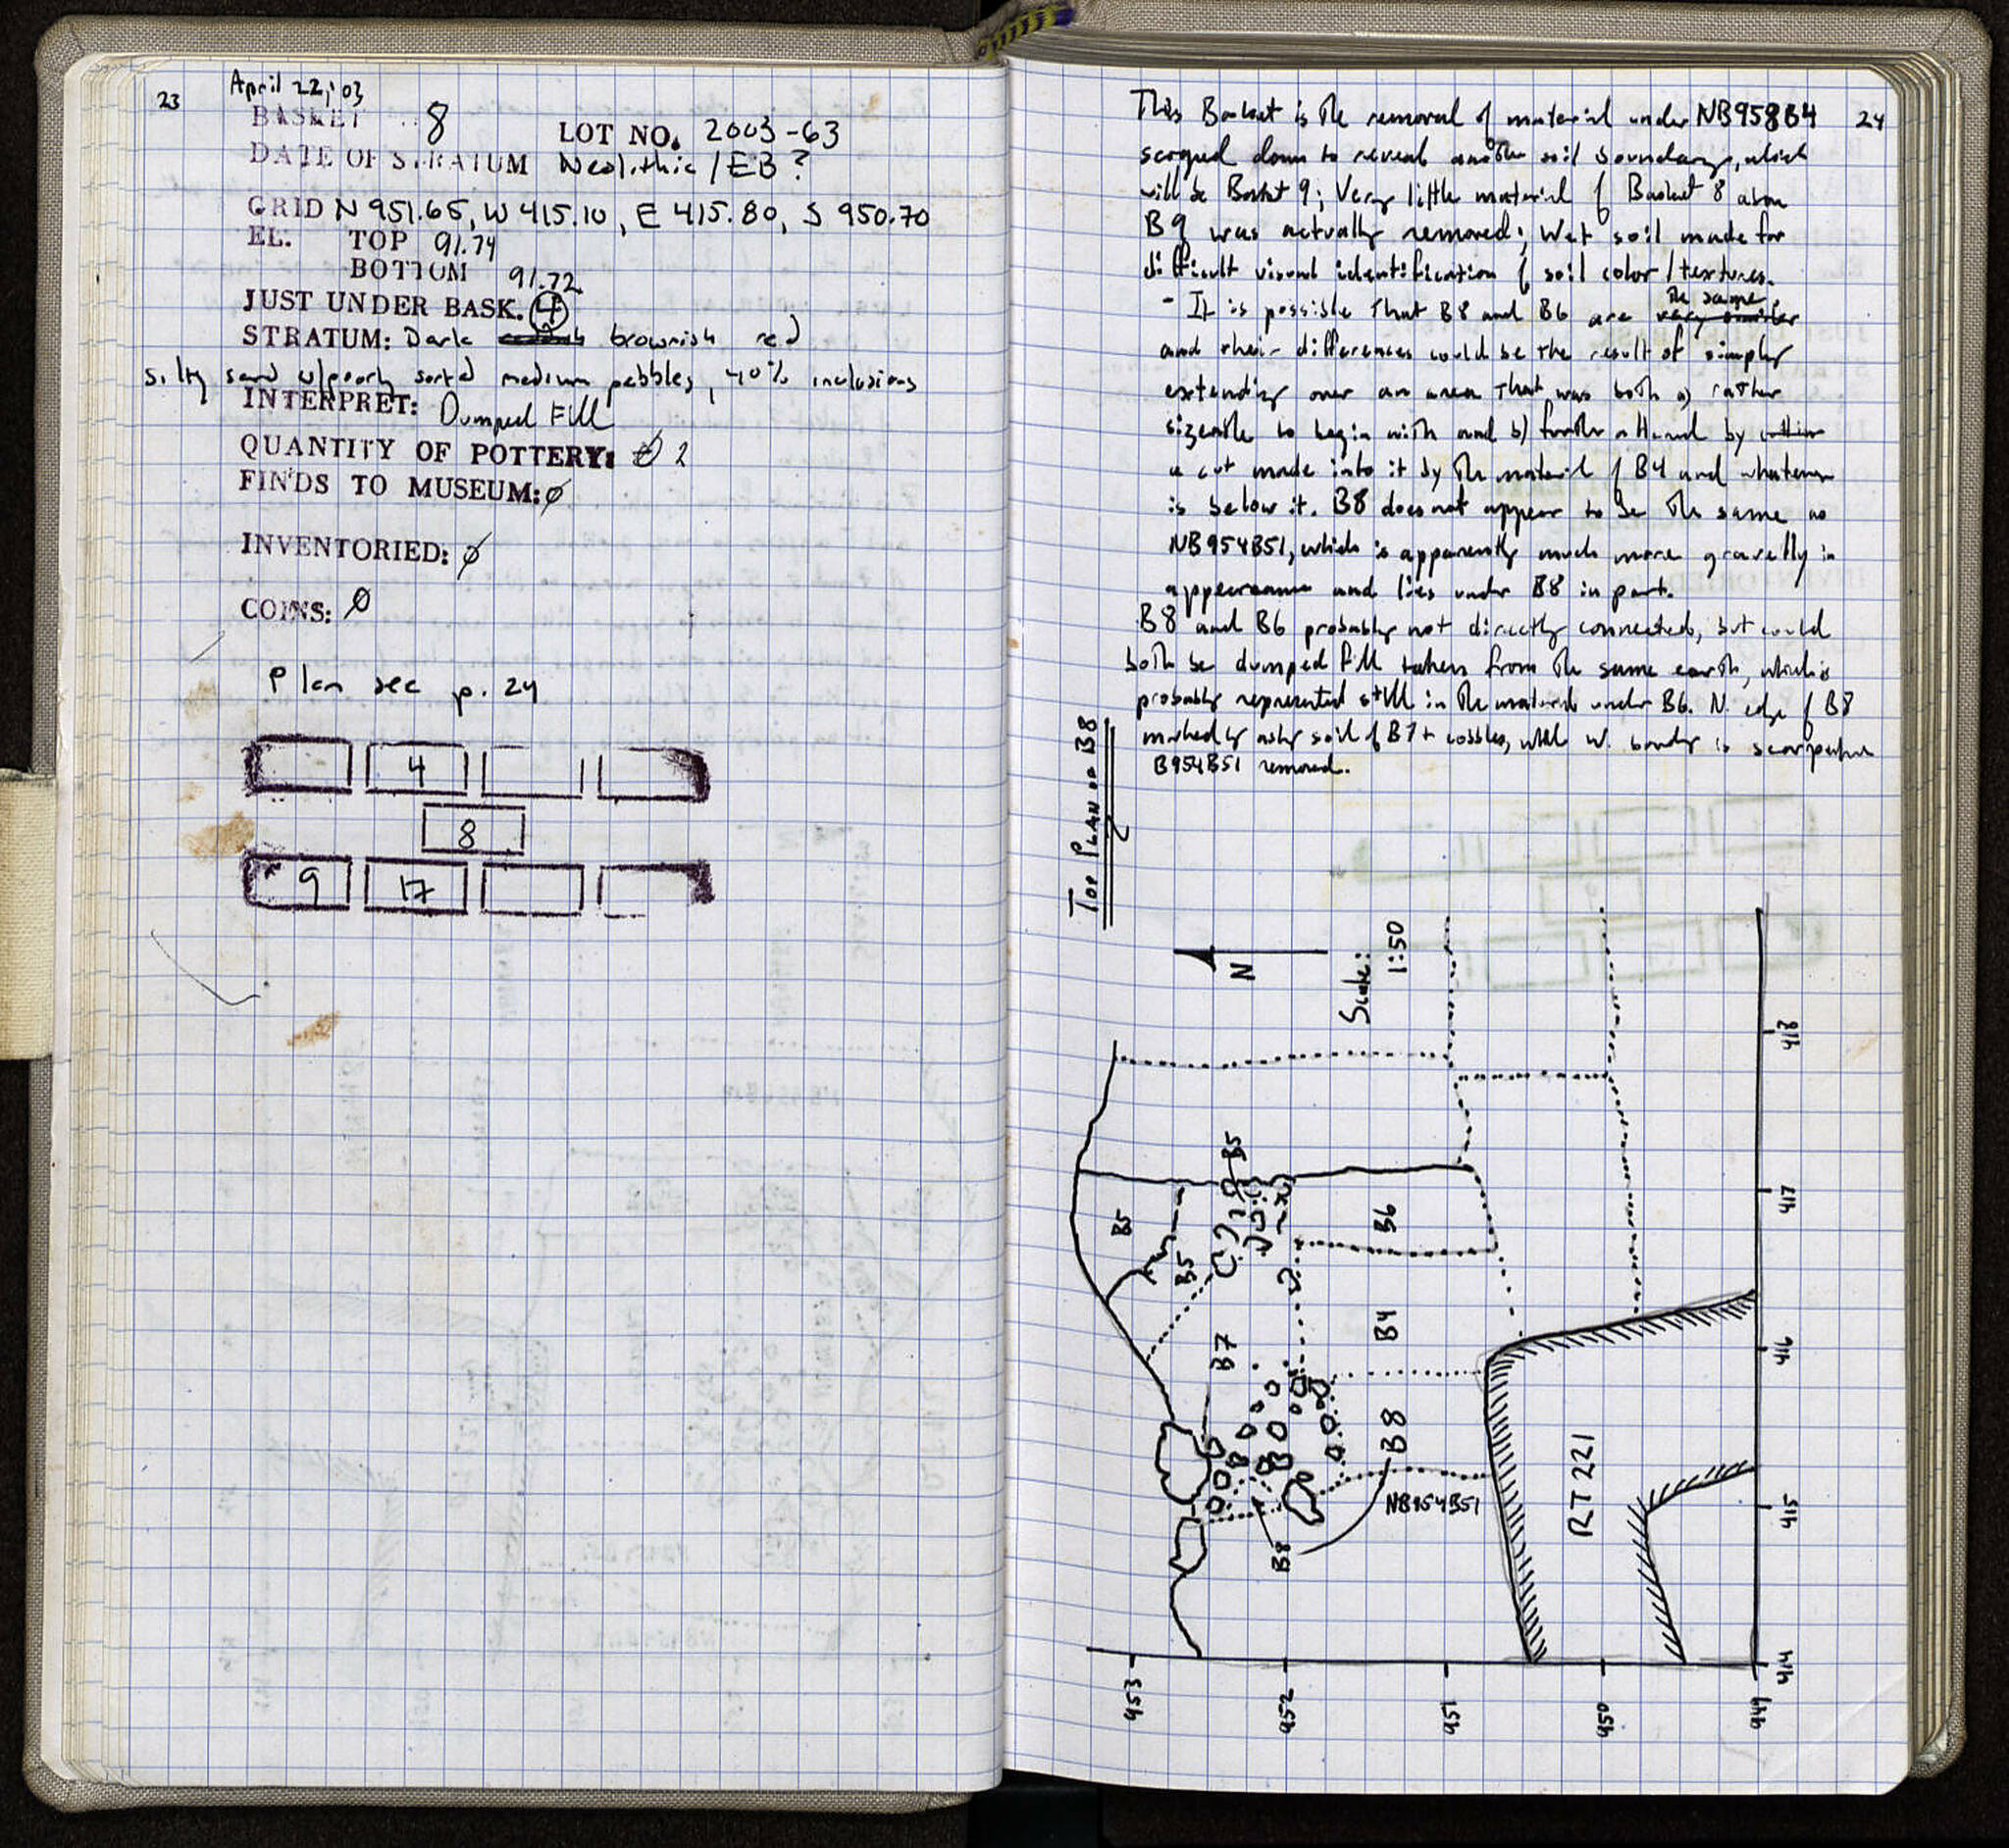 23
April 22, '03
BASKET 8
LOT NO. 2003-63
DATE OF STRATUM Neolithic / EB?
GRID N 951.65, W 415.10, E 415.80, S 950.70
EL. TOP 91.74
BOTTOM 91.72
JUST UNDER BASK. 4
STRATUM: Dark brownish red
silty sand w/poorly sorted medium pebbles, 40% inclusions
INTERPRET: Dumped Fill
QUANTITY OF POTTERY: 2
FINDS TO MUSEUM: ø
INVENTORIED: ø
COINS: ø
Plan see p. 24
4
8
9 17
24
This Basket is the removal of material under NB958B4
scraped down to reveal another soil boundary, which
will be Basket 9; Very little material of Basket 8 above
B9 was actually removed; Wet soil made for
difficult visual identification of soil color/textures.
- It is possible that B8 and B6 are very similar the same,
and their differences could be the result of simply
extending over an area that was both a) rather
sizeable to begin with and b) further altered by
a cut made into it by the material of B4 and whatever
is below it. B8 does not appear to be the same as
NB954B51, which is apparently much more gravelly in
appearance and lies under B8 in part.
B8 and B6 probably not directly connected, but could
both be dumped fill taken from the same earth, which is
probably represented still in the materials under B6. N. edge of B8
marked by ashy soil of B7 + cobbles, while W. boundary is
B954B51 removed.
TOP PLAN B8
N
Scale:
1:50
418
417
416
415
414
B5
B5
B5
B6
B7
B4
B8
B8
NB954B51
RT 221
953
952
951
950
949